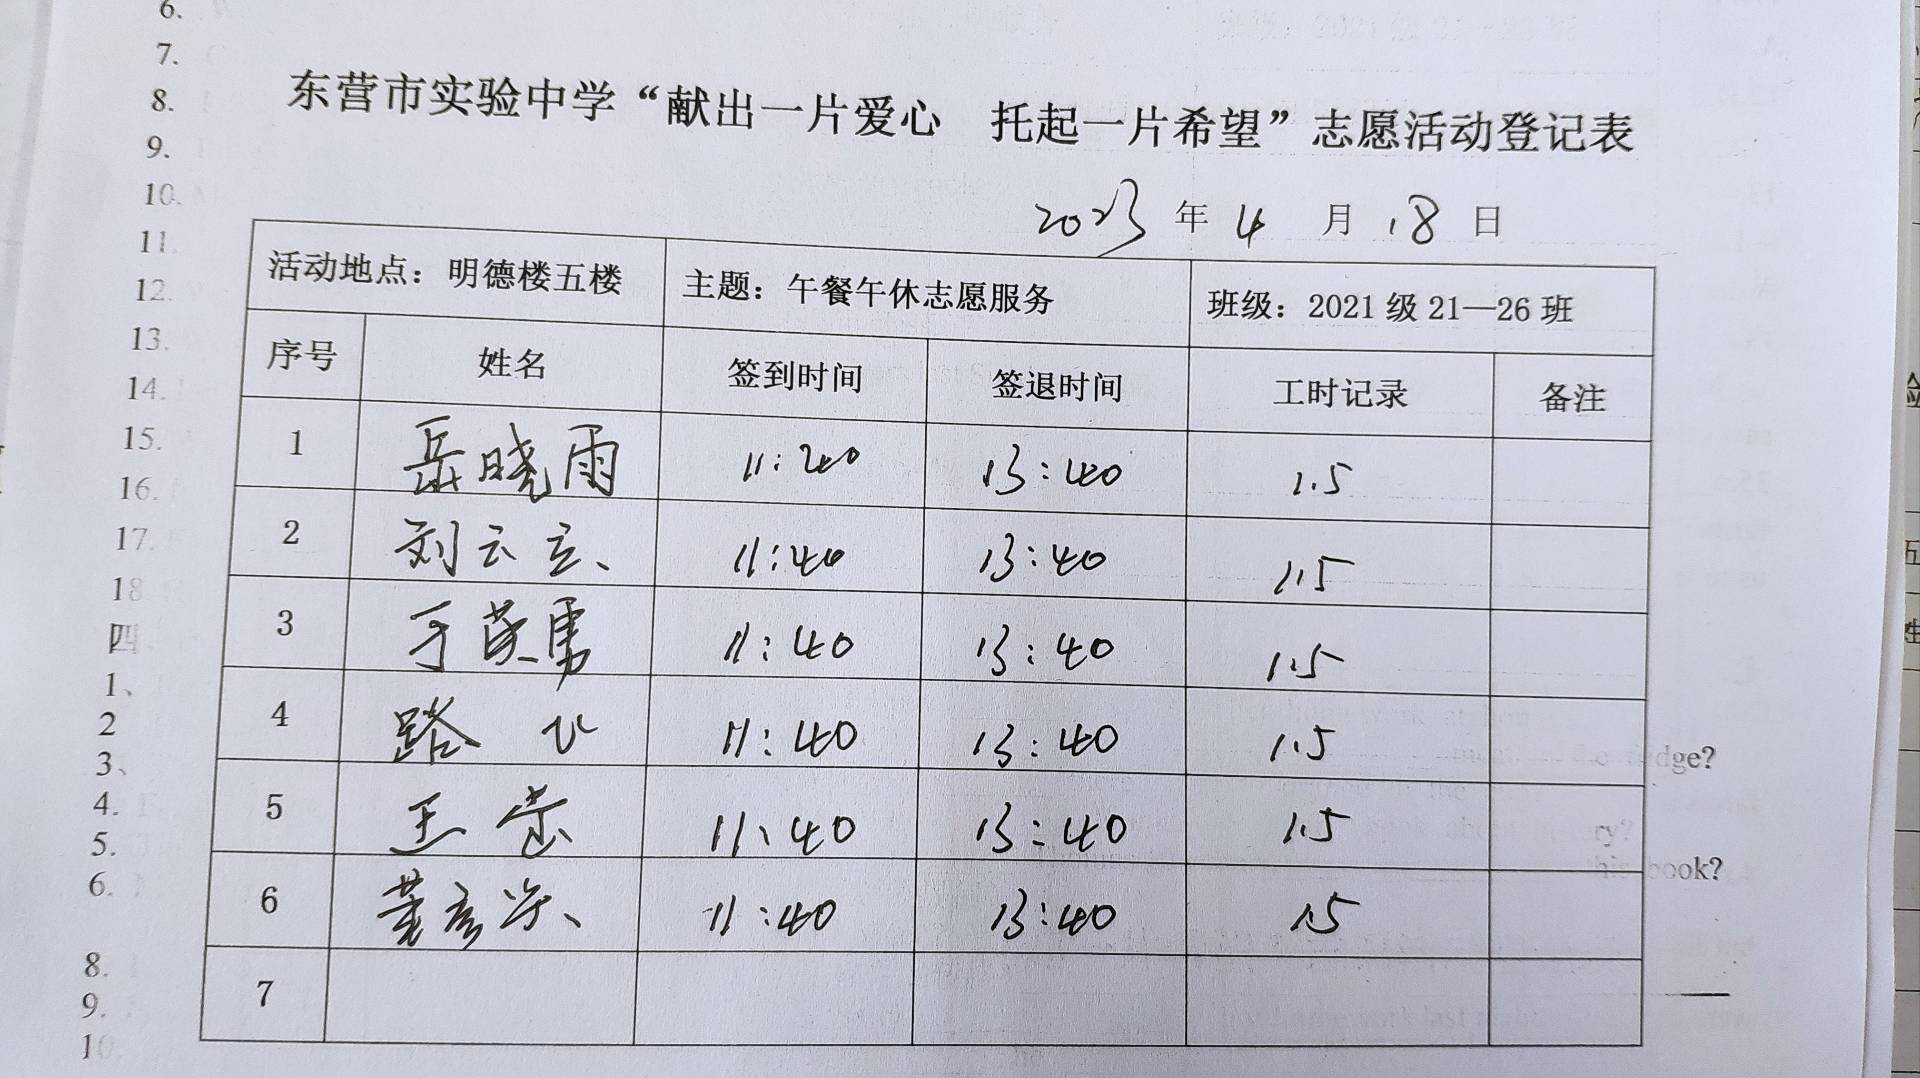 6.
7.
8.
9.
10.
11.
12.
13.
14.
15.
16.
17.
18
四
1、
2
3、
4.
5.
6.
8.
9.
10.
东营市实验中学“献出一片爱心 托起一片希望”志愿活动登记表
2023 年 4 月 18 日
活动地点：明德楼五楼 主题：午餐午休志愿服务 班级：2021 级 21—26 班
序号 姓名 签到时间 签退时间 工时记录 备注
1 岳晓雨 11:40 13:40 1.5
2 刘云立 11:40 13:40 1.5
3 于英勇 11:40 13:40 1.5
4 路 11:40 13:40 1.5
5 王 11:40 13:40 1.5
6 董彦 11:40 13:40 1.5
7
dge?
this book?